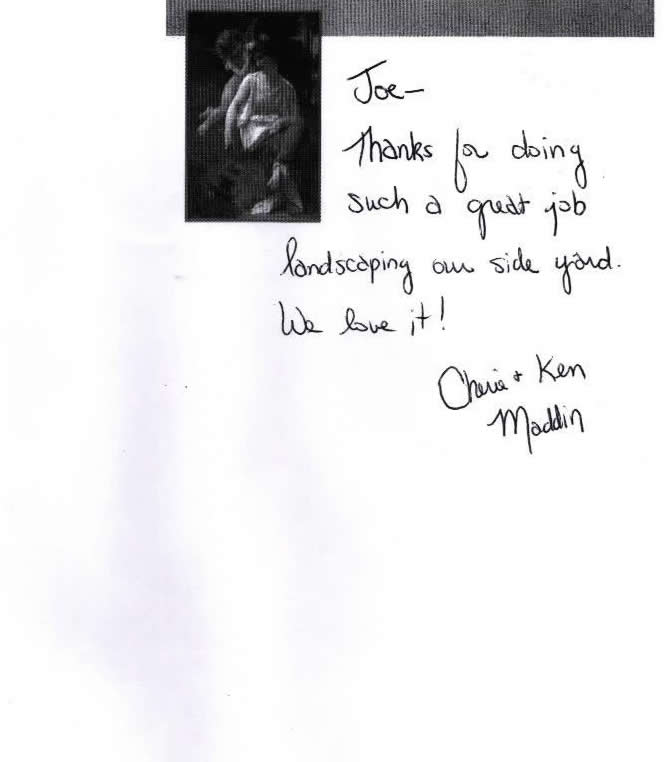 Joe—
Thanks for doing
such a great job
landscaping our side yard.
We love it!
Cherie + Ken
Maddin